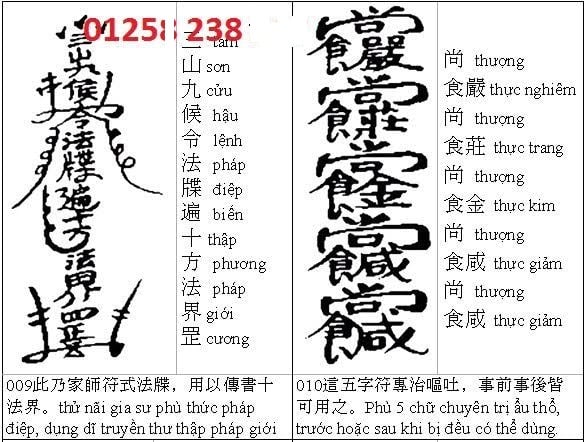 01258 238
tam
山 sơn
九 cửu
候 hậu
令 lệnh
法 pháp
牒 điệp
遍 biến
十 thập
方 phương
法 pháp
界 giới
罡 cương
009此乃家師符式法牒，用以傳書十
法界。thử nãi gia sư phù thức pháp
điệp, dụng dĩ truyền thư thập pháp giới
尚 thượng
食嚴 thực nghiêm
尚 thượng
食莊 thực trang
尚 thượng
食金 thực kim
尚 thượng
食咸 thực giảm
尚 thượng
食咸 thực giảm
010這五字符專治嘔吐，事前事後皆
可用之。Phù 5 chữ chuyên trị ẩu thổ,
trước hoặc sau khi bị đều có thể dùng.